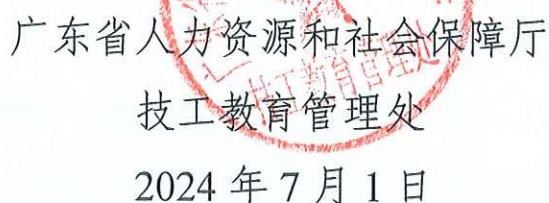 广东省人力资源和社会保障厅
技工教育管理处
2024 年 7 月 1 日
技工教育管理处